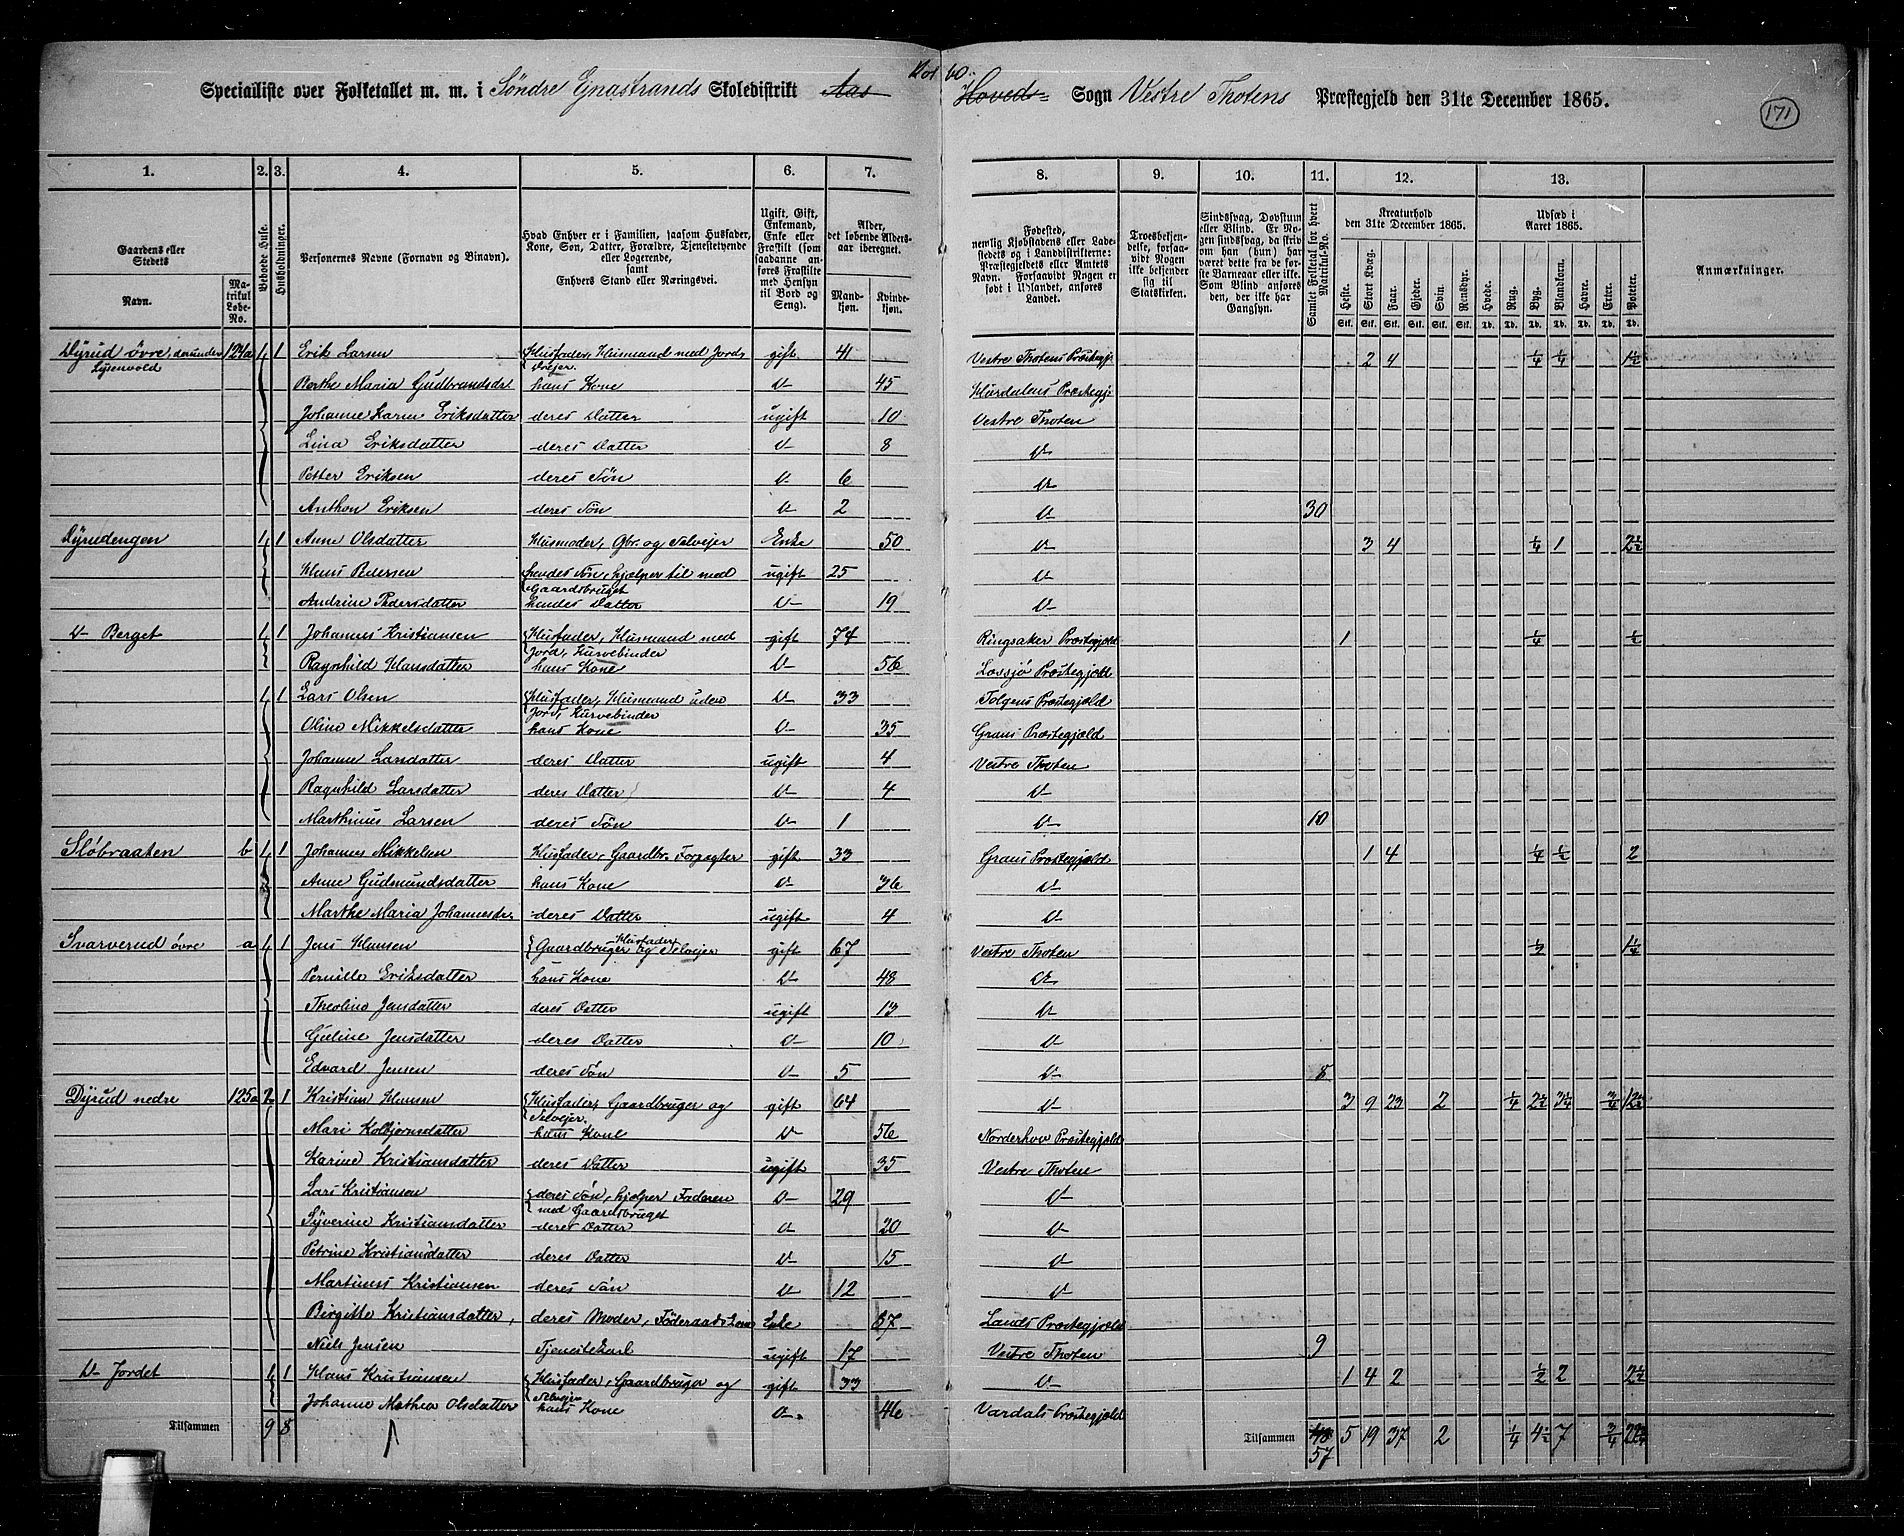 Specialliste over Folketallet m. m. i Söndre Gjnastrands Skoledistrikt Aas Kol bo. Hoved Sogn Vestre Thotens Præstegjeld den 31te December 1865.
171
1. 2. 3. 4. 5. 6. 7. 8. 9. 10. 11. 12. 13.
Gaardens eller Stedets
Navn.
Matrikul Løbe-No.
Beboede Huse.
Husholdninger.
Personernes Navne (Fornavn og Binavn).
Hvad Enhver er i Familien, saasom Husfader, Kone, Søn, Datter, Forældre, Tjenestetyende eller Logerende, samt Enhvers Stand eller Næringsvei.
Ugift, Gift, Enkemand, Enke eller Fraskilt (som saadanne anføres Fraskilte med Hensyn til Bord og Seng).
Alder, det løbende Aldersaar iberegnet.
Mandkjøn.
Kvindekjøn.
Fødested, nemlig Kjøbstadens eller Ladestedets og i Landdistrikterne: Præstegjeldets eller Amtets Navn. Forsaavidt Nogen er født i Udlandet, anføres Landet.
Troesbekjendelse, forsaavidt Nogen ikke bekjender sig til Statskirken.
Sindssvag, Døvstum eller Blind. Er Nogen sindssvag, da skrives om han (hun) har været dette fra de første Barneaar eller ikke. Som Blind anføres den, der ikke har Gangsyn.
Samlet Folketal for hvert Matrikul-No.
Kreaturhold den 31te December 1865.
Heste. Stort Kvæg. Faar. Gjeder. Svin. Rensdyr.
Udsæd i Aaret 1865.
Hvede. Rug. Byg. Blandkorn. Havre. Erter. Poteter.
Anmærkninger.
Stk. Stk. Stk. Stk. Stk. Stk. Td. Td. Td. Td. Td. Td. Td.
Dyrud övre, derunder Lysenvold 124a 1 1 Erik Larsen Husfader, Husmand med Jord, Dreier gift 41 Vestre Thotens Præstegj. 2 4 1/4 1/4 1 1/2
Berthe Maria Gudbrandsdr. hans Kone D- 45 Hurdalens Præstegj.
Johanne Karine Eriksdatter deres Datter ugift 10 Vestre Thoten
Lina Eriksdatter deres Datter D- 8 D-
Petter Eriksen deres Sön D- 6 D-
Anthon Eriksen deres Sön D- 2 D- 30
Dyrudengen 1 1 Anne Olsdatter Husmoder, Gbr. og Selvejer Enke 50 D- 3 4 1/4 1 2 1/2
Hans Pedersen hendes Sön, hjælper til med Gaardsbruget ugift 25 D-
Andrine Pedersdatter hendes Datter D- 19 D-
D- Berget 1 1 Johannes Kristiansen Husfader, Husmand med Jord, Kurvebinder gift 74 Ringsaker Præstegjeld 1 1/4 1/2
Ragnhild Hansdatter hans Kone D- 56 Lessjø Præstegjeld
1 1 Lars Olsen Husfader, Husmand uden Jord, Kurvebinder D- 33 Tolgens Præstegjæld
Oline Mikkelsdatter hans Kone D- 35 Grans Præstegjæld
Johanne Larsdatter deres Datter ugift 4 Vestre Thoten
Ragnhild Larsdatter deres Datter D- 4 D-
Marthinus Larsen deres Sön D- 1 D- 10
Slöbraaten b 1 1 Johannes Mikkelsen Husfader, Gaardbr. Forpagter gift 33 Grans Præstegjeld 1 4 1/4 1/2 2
Anne Gudmundsdatter hans Kone D- 36 D-
Marthe Maria Johannesdr. deres Datter ugift 4 D-
Svarverud övre a 1 1 Jens Hansen Husfader Gaardbruger og Selvejer gift 67 Vestre Thoten 1/2 1 1/4
Pernille Eriksdatter hans Kone D- 48 D-
Theoline Jensdatter deres Datter ugift 13 D-
Guline Jensdatter deres Datter D- 10 D-
Edvard Jensen deres Sön D- 5 D- 8
Dyrud nedre 125a 2 1 Kristian Hansen Husfader, Gaardbruger og Selvejer gift 64 D- 3 9 23 2 1/4 2 1/2 3 1/4 3/4 12 1/2
Mari Kolbjørnsdatter hans Kone D- 56 Norderhov Præstegjæld
Karine Kristiansdatter deres Datter ugift 35 Vestre Thoten
Lars Kristiansen deres Sön, hjælper Faderen med Gaardsbruget D- 29 D-
Syverine Kristiansdatter deres Datter D- 20 D-
Petrine Kristiansdatter deres Datter D- 15 D-
Martinus Kristiansen deres Sön D- 12 D-
Birgitte Kristiansdatter, deres Moder, Föderaadskone Enke 87 Lands Præstegjæld
Niels Jensen Tjenestekarl ugift 17 Vestre Thoten 9
D- Jordet 1 1 Hans Kristiansen Husfader, Gaardbruger og Selvejer gift 33 D- 1 4 2 1/2 2 2 1/2
Johanne Mathea Olsdatter hans Kone D- 46 Vardals Præstegjæld
Tilsammen 9 8 Tilsammen 57 5 19 37 2 1/4 4 1/2 7 3/4